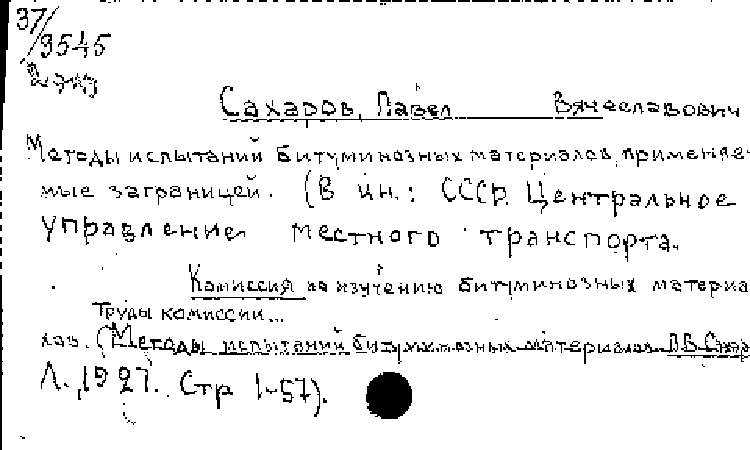 37/9545
Сахаров, Павел Вячеславович
Методы испытаний битуминозных материалов, применяе-
мые заграницей. (В кн.: СССР. Центральное
управление местного транспорта.
Комиссия по изучению битуминозных материа
Труды комиссии...
лов. (Методы испытаний битуминозных материалов П.В. Сахар
Л., 1927. Стр 1-57).